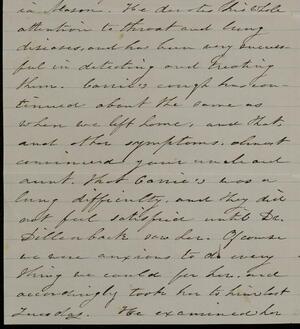 in Mason. He devotes his whole
attention to throat and lung
diseases, and has been very success-
ful in detecting and treating
them. Carrie's cough has con-
tinued about the same as
when we left home, and that,
and other symptoms, almost
convinced your uncle and
aunt that Carrie's was a
lung difficulty, and they did
not feel satisfied until Dr.
Dillenback saw her. Of course
we were anxious to do every
thing we could for her, and
accordingly took her to him last
Tuesday. He examined her